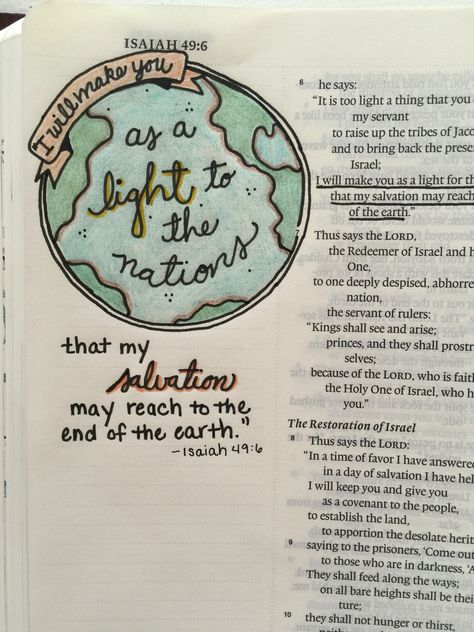 ISAIAH 49:6
I will make you
as a
light to
the
nations
that my
salvation
may reach to the
end of the earth."
-Isaiah 49:6
6 he says:
"It is too light a thing that you
my servant
to raise up the tribes of Jaco
and to bring back the prese
Israel;
I will make you as a light for th
that my salvation may reach
of the earth."
7 Thus says the LORD,
the Redeemer of Israel and h
One,
to one deeply despised, abhorre
nation,
the servant of rulers:
"Kings shall see and arise;
princes, and they shall prostr
selves;
because of the LORD, who is faith
the Holy One of Israel, who h
you."
The Restoration of Israel
8 Thus says the LORD:
"In a time of favor I have answere
in a day of salvation I have hel
I will keep you and give you
as a covenant to the people,
to establish the land,
to apportion the desolate herit
9 saying to the prisoners, 'Come out
to those who are in darkness, 'A
They shall feed along the ways;
on all bare heights shall be thei
ture;
10 they shall not hunger or thirst,